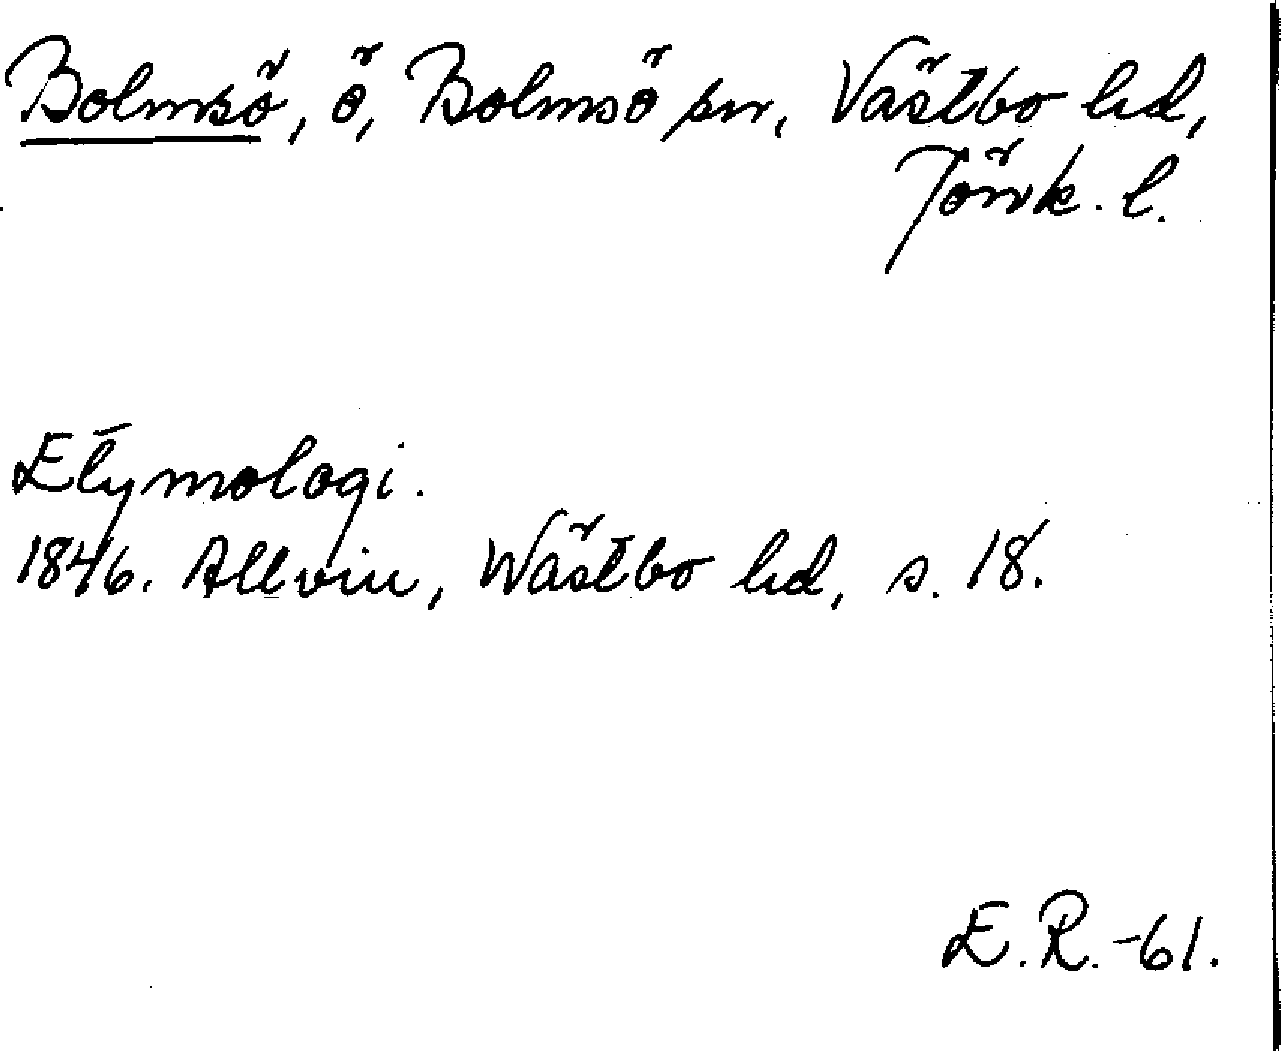 Bolmsö, ö, Bolmsö sn, Västbo hd,
Jönk. l.
Etymologi.
1846. Allvin, Wästbo hd, s. 18.
E.R.-61.